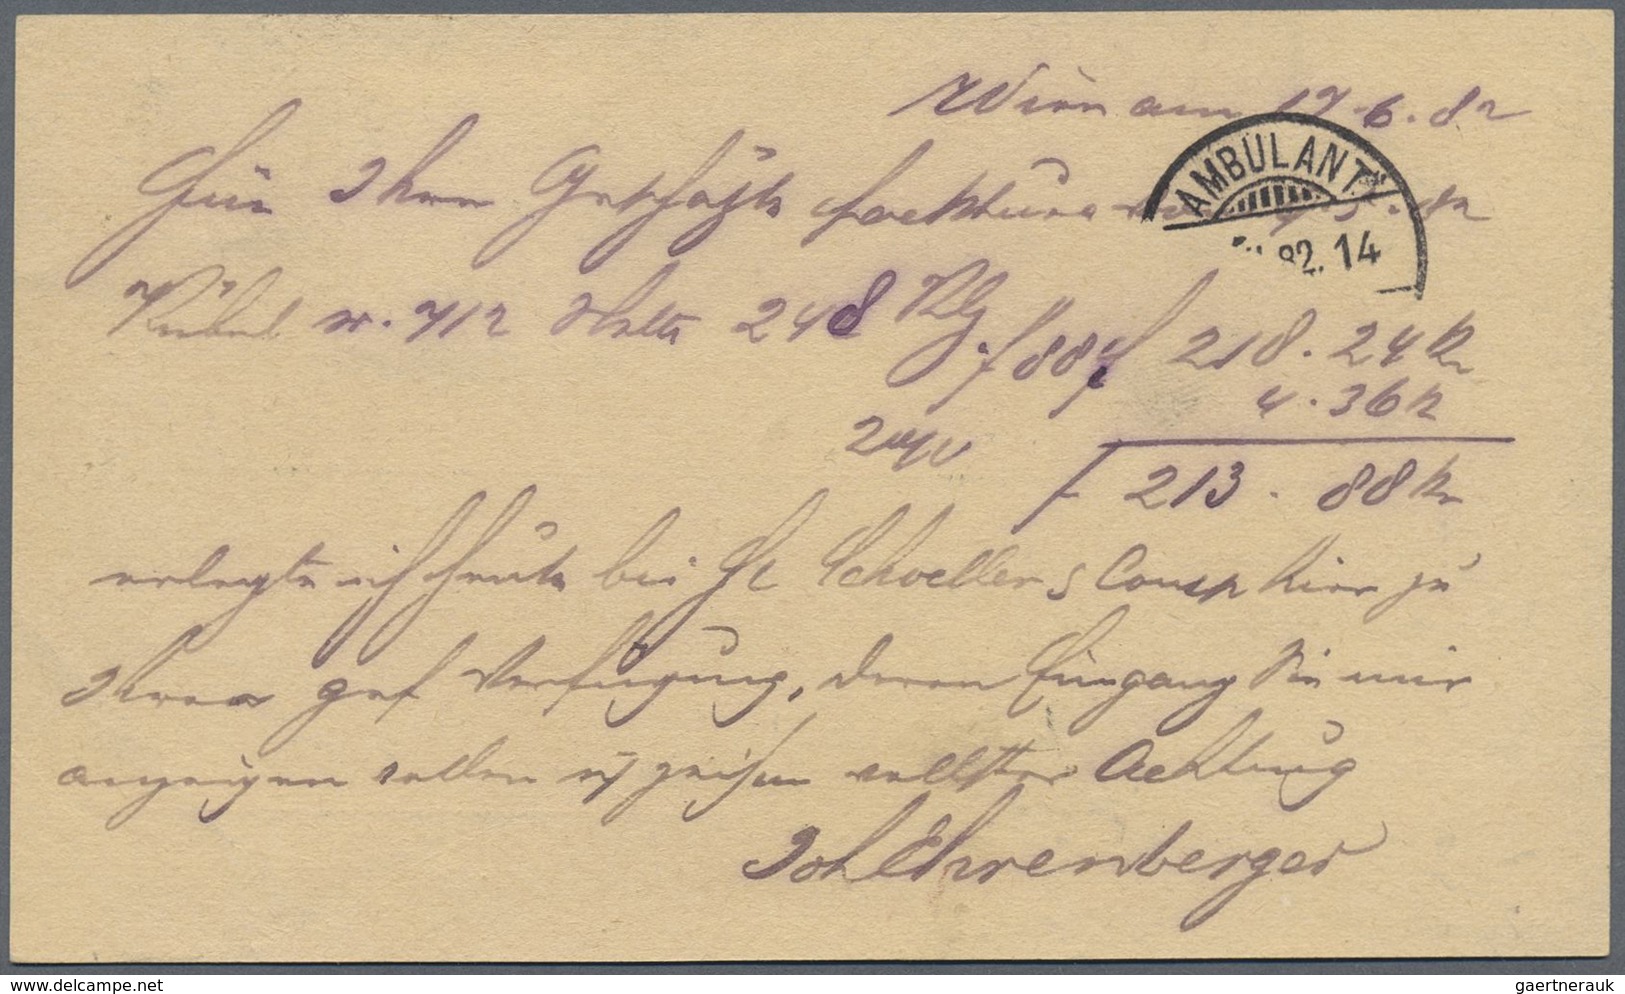 Wien am 17.6.82
AMBULANT
Für Ihre Geschäfts facktura
82. 14
Kübel N. 712 Netto 248 Klg
f 88 f 218. 24 Kr
4. 36 K
2%
f 213. 88 Kr
erlegte ich heute bei H Schoeller & Comp hier zu
Ihrer gef Verfügung, deren Eingang Sie mir
anzeigen wollen ich zeichne vollster Achtung
Joh Ehrenberger
delcampe.net
gaertnerauk